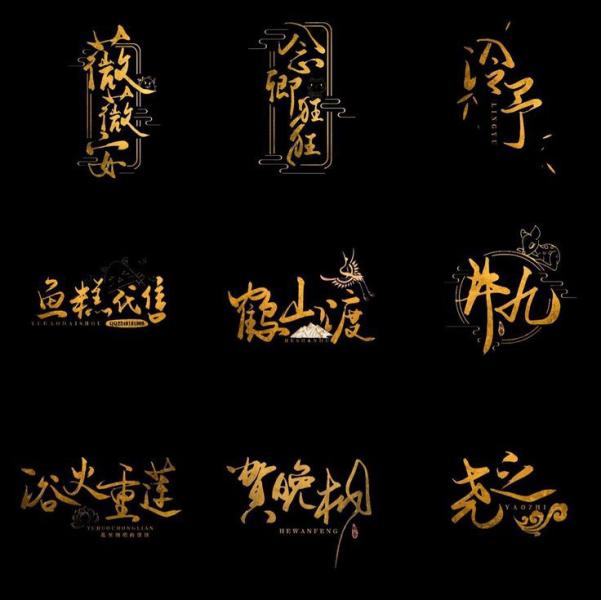 薇薇安
念卿
旺旺
泠予
LINGYU
鱼糕代售
YUGAODAISHOU
鹤山渡
HESHANDU
井九
浴火重莲
YUHUOCHONGLIAN
贺晚枫
HEWANFENG
尧之
YAOZHI